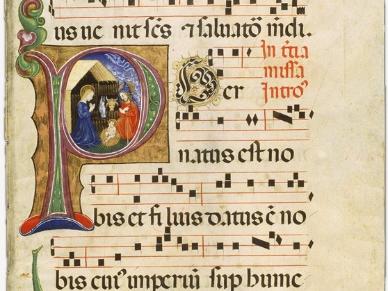 us ue nit sc̄s ⁊ saluatō mūdi.
In t̄cia
missa
Introⁱ
PUer
natus est no
bis et filius datus ē no
bis cuiꝰ imperiū sup hume